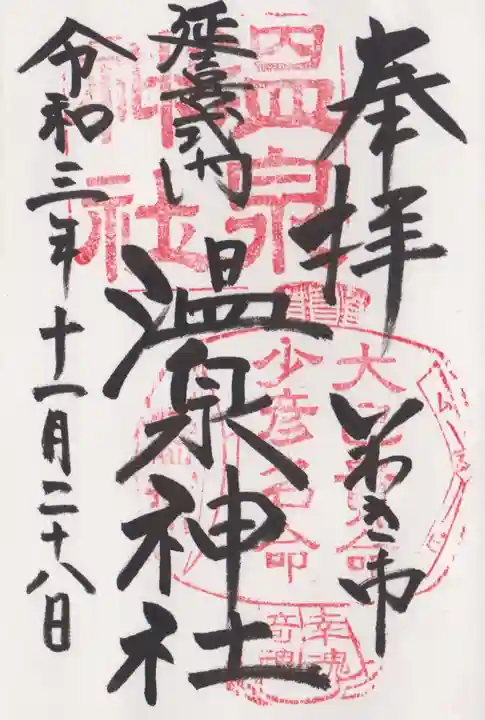 奉拝
いわき市
延喜式内
温泉神社
令和三年十一月二十八日
温泉
神社
大己貴命
少彦名命
幸魂
奇魂